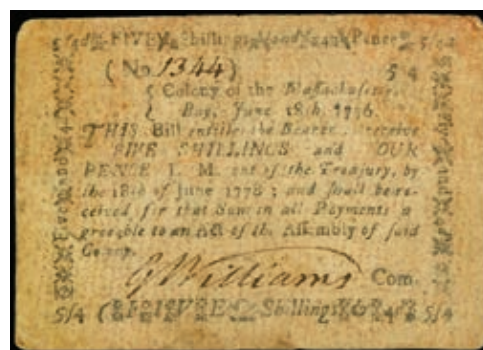 5/4d FIVE Shillings and 4d Pence 5/4
(No 1344) 5 4
Colony of the Massachusetts
Bay, June 18th, 1776.
THIS Bill entitles the Bearer receive
FIVE SHILLINGS and OUR
PENCE L. M. out of the Treasury, by
the 18th of June 1778 ; and shall be re-
ceived for that Sum in all Payments a
greeable to an Act of the Assembly of said
Colony.
J Williams Com.
5/4 Shillings & 4d 5/4